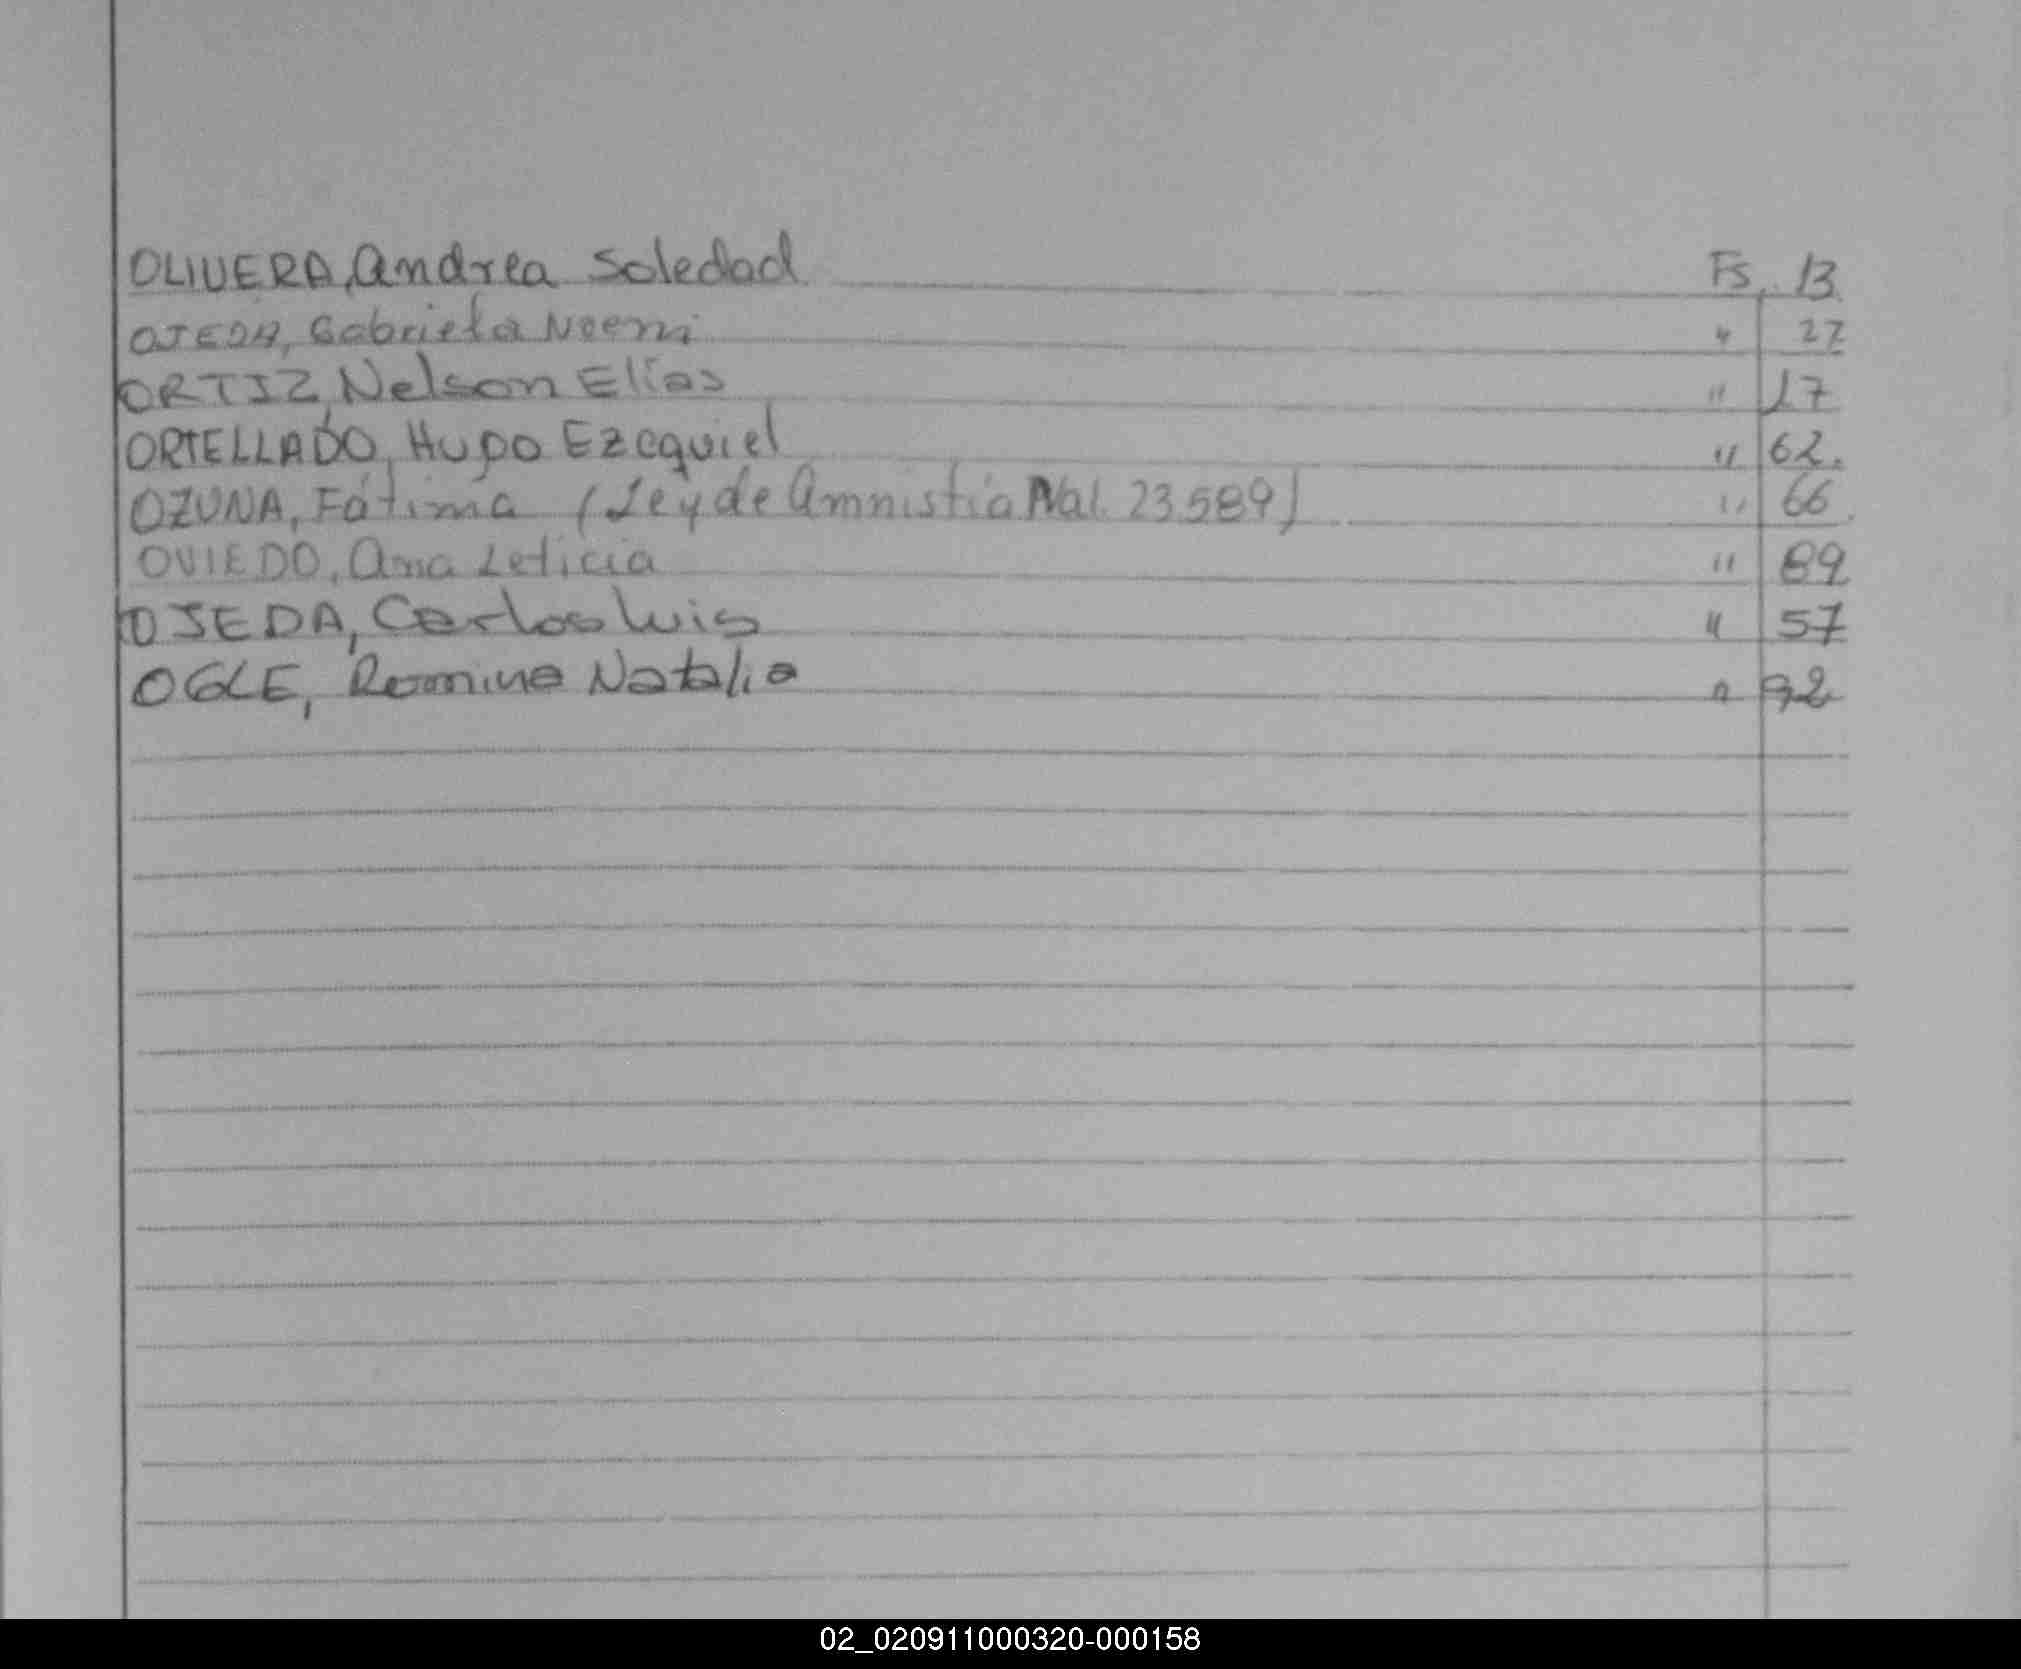 OLIVERA, Andrea Soledad Fs. 13
OJEDA, Gabriela Noemi " 27
ORTIZ, Nelson Elías " 17
ORTELLADO, Hugo Ezequiel " 62.
OZUNA, Fátima (Ley de Amnistía Nal. 23.589) " 66
OVIEDO, Ana Leticia " 89
OJEDA, Carlos Luis " 57
OGLE, Romina Natalia " 92
02_020911000320-000158